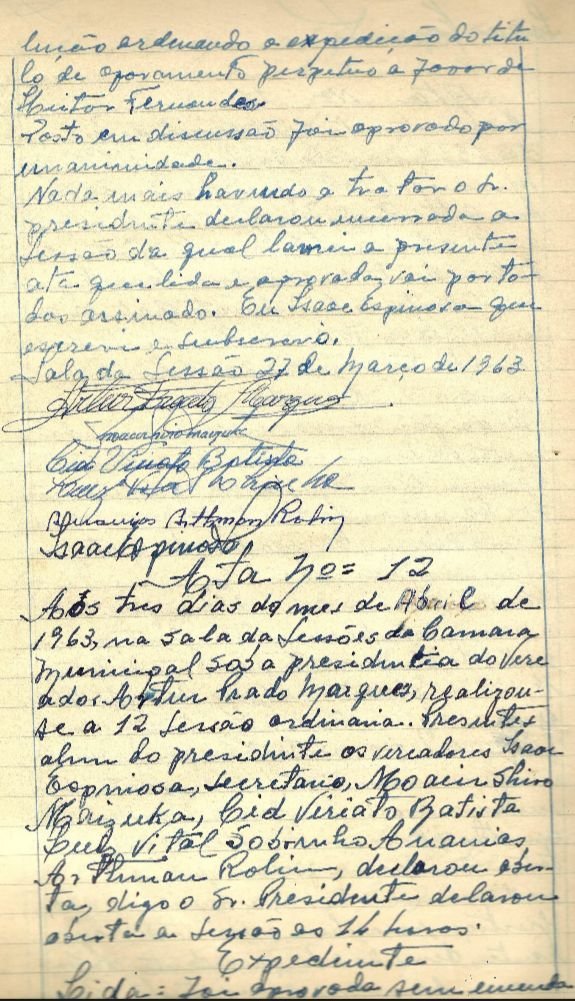 lução ordenando a expedição do titu
lo de aforamento perpetuo a favor de
Heitor Fernandes.
Posto em discussão foi aprovado por
unanimidade.
Nada mais havendo a tratar o Sr.
presidente declarou encerrada a
Sessão da qual lavrei a presente
ata que lida e aprovada, vai por to-
dos assinado. Eu Isaac Espinosa que
escrevi e subscrevo.
Sala da Sessão 27 de Março de 1963
Artur Prado Marques
Cid Viriato Batista
Luiz Vital Sobrinho
Ananias Arthman Rolim
Isaac Espinosa
Ata nº = 12
Aos três dias do mes de Abril de
1963, na Sala da Sessões da Camara
Municipal sob a presidencia do vere
ador Artur Prado Marques, realizou-
se a 12 Sessão ordinaria. Presentes
alem do presidente os vereadores Isaac
Espinosa, Secretario, Moacir Shiro
Cid Viriato Batista
Luiz Vital Sobrinho Ananias,
Arthman Rolim, declarou aber-
ta, digo o Sr. Presidente declarou
aberta a Sessão as 14 horas.
Expediente
Lida: Foi aprovada sem emenda